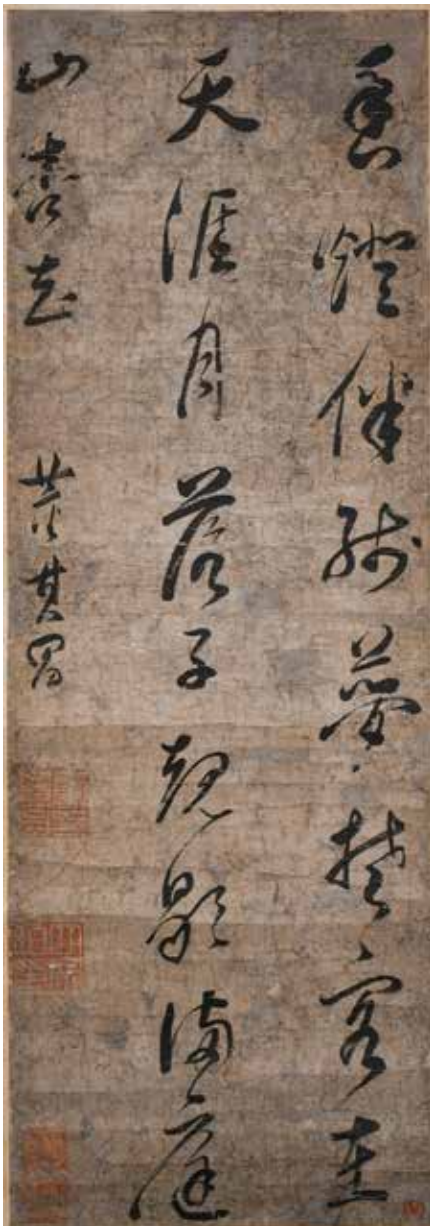 香燈伴殘夢楚客在
天涯月落子規歇滿庭
山杏花　董其昌